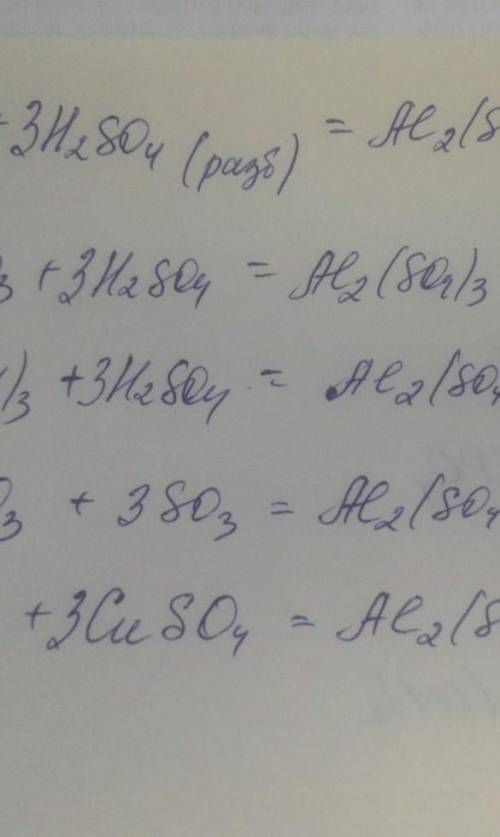 +3H₂SO₄ (разб) = Al₂(S
₃ +3H₂SO₄ = Al₂(SO₄)₃
)₃ +3H₂SO₄ = Al₂(SO₄
O₃ + 3SO₃ = Al₂(SO₄
+3CuSO₄ = Al₂(S